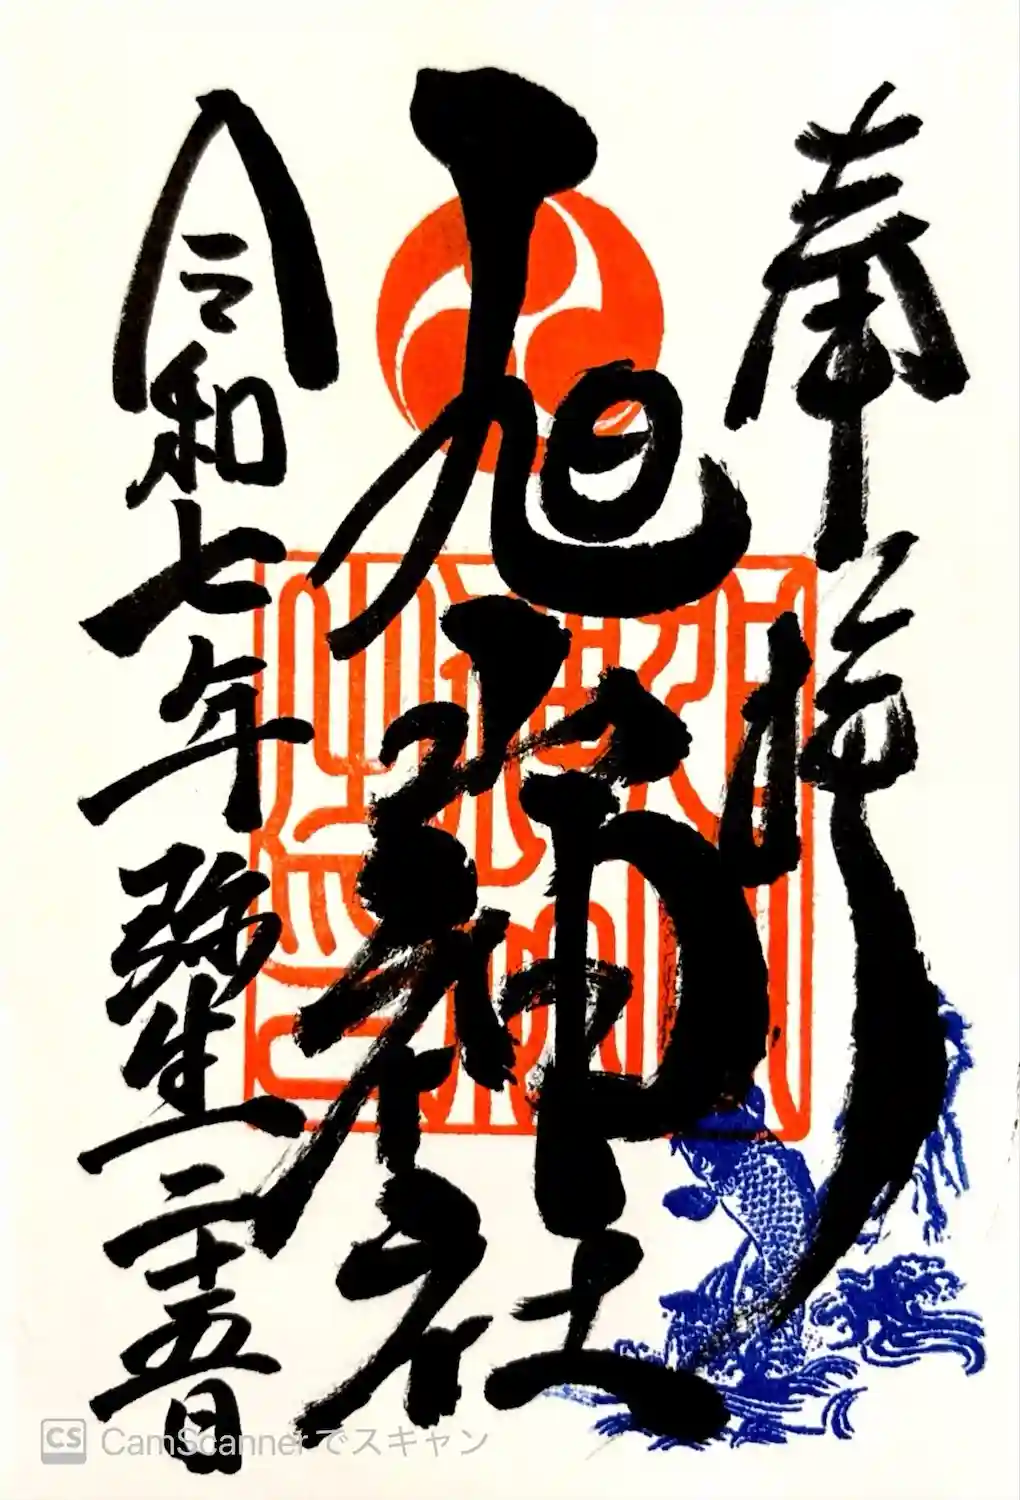 奉拝
旭神社
令和七年弥生二十五日
CS CamScannerでスキャン